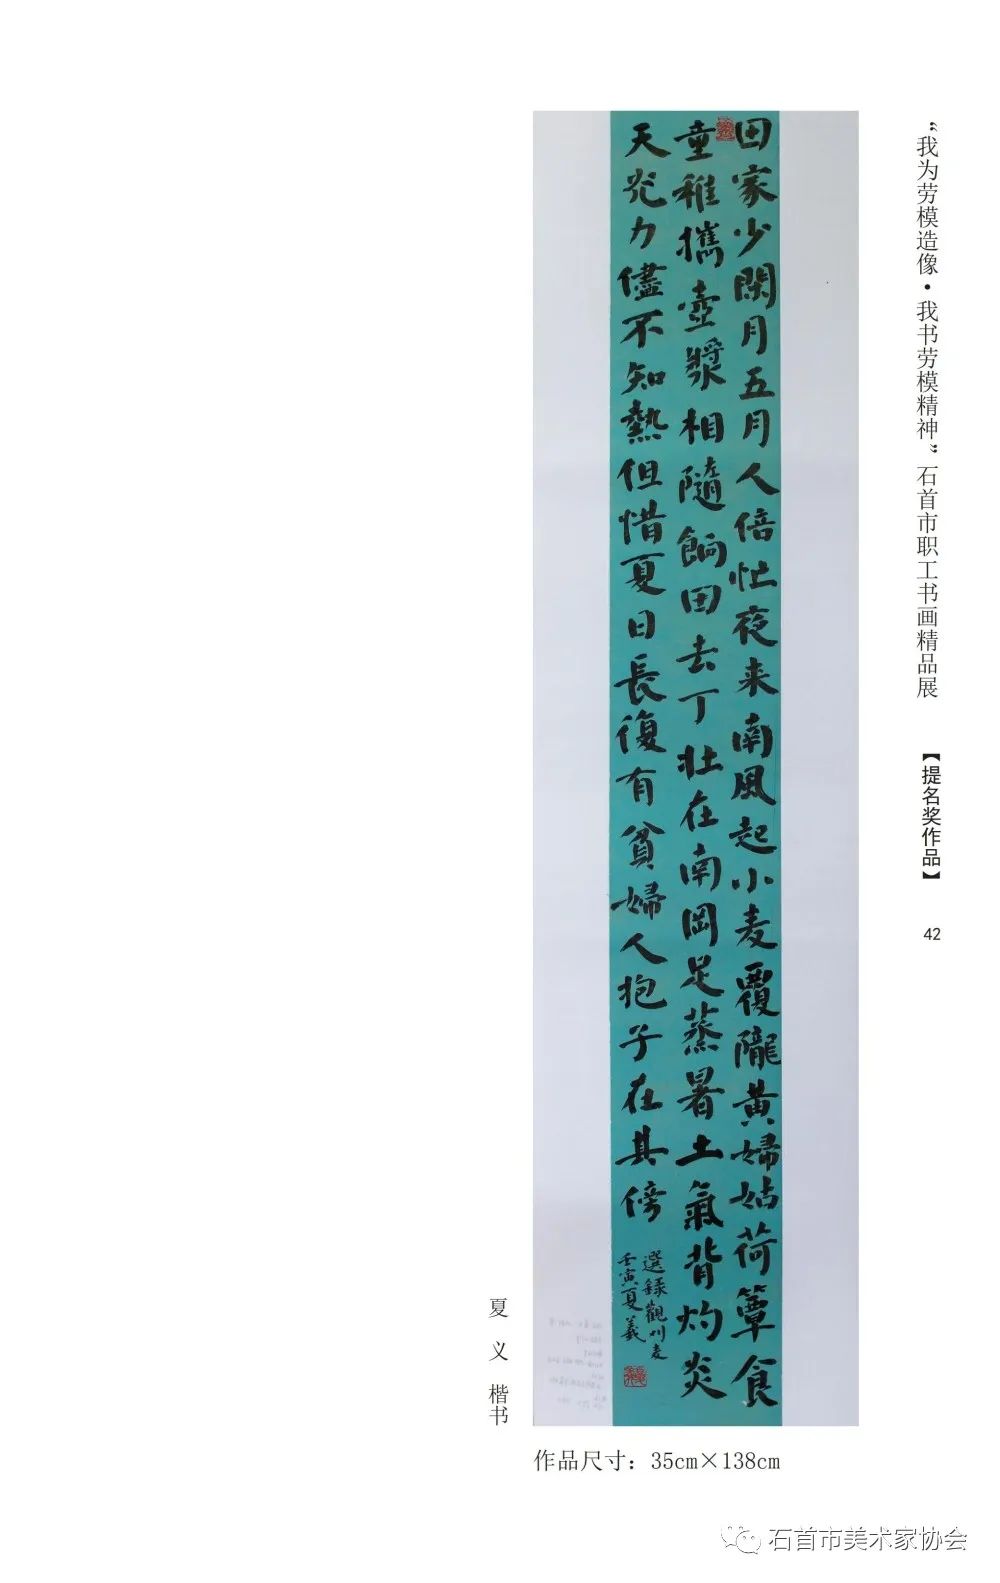 “我为劳模造像·我书劳模精神”石首市职工书画精品展
【提名奖作品】
42
田家少閑月五月人倍忙夜来南風起小麦覆隴黄婦姑荷簞食
童稚攜壺漿相隨餉田去丁壯在南岡足蒸暑土氣背灼炎
天光力儘不知熱但惜夏日長復有貧婦人抱子在其傍
選録觀刈麦
壬寅夏義
夏 义 楷书
作品尺寸：35cm×138cm
石首市美术家协会